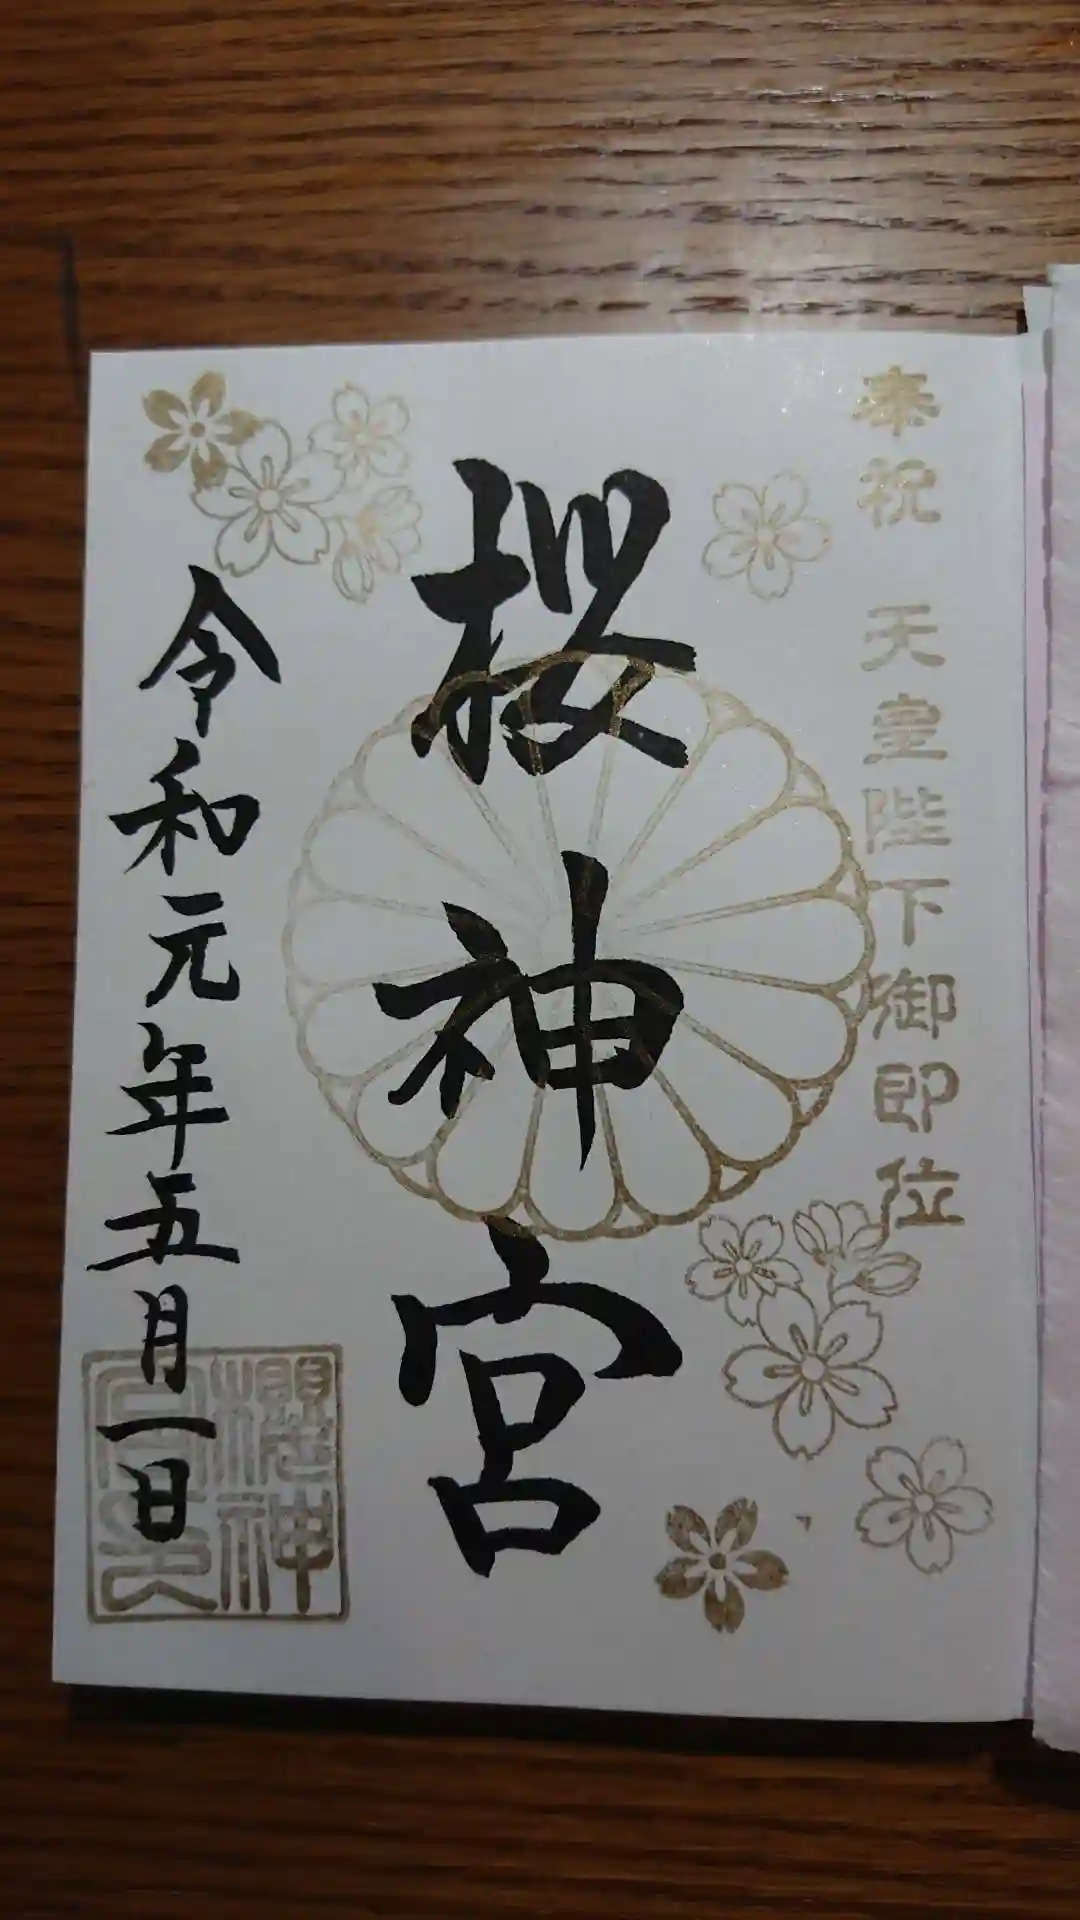 奉祝 天皇陛下御即位
櫻神宮
令和元年五月一日
櫻神
宮印